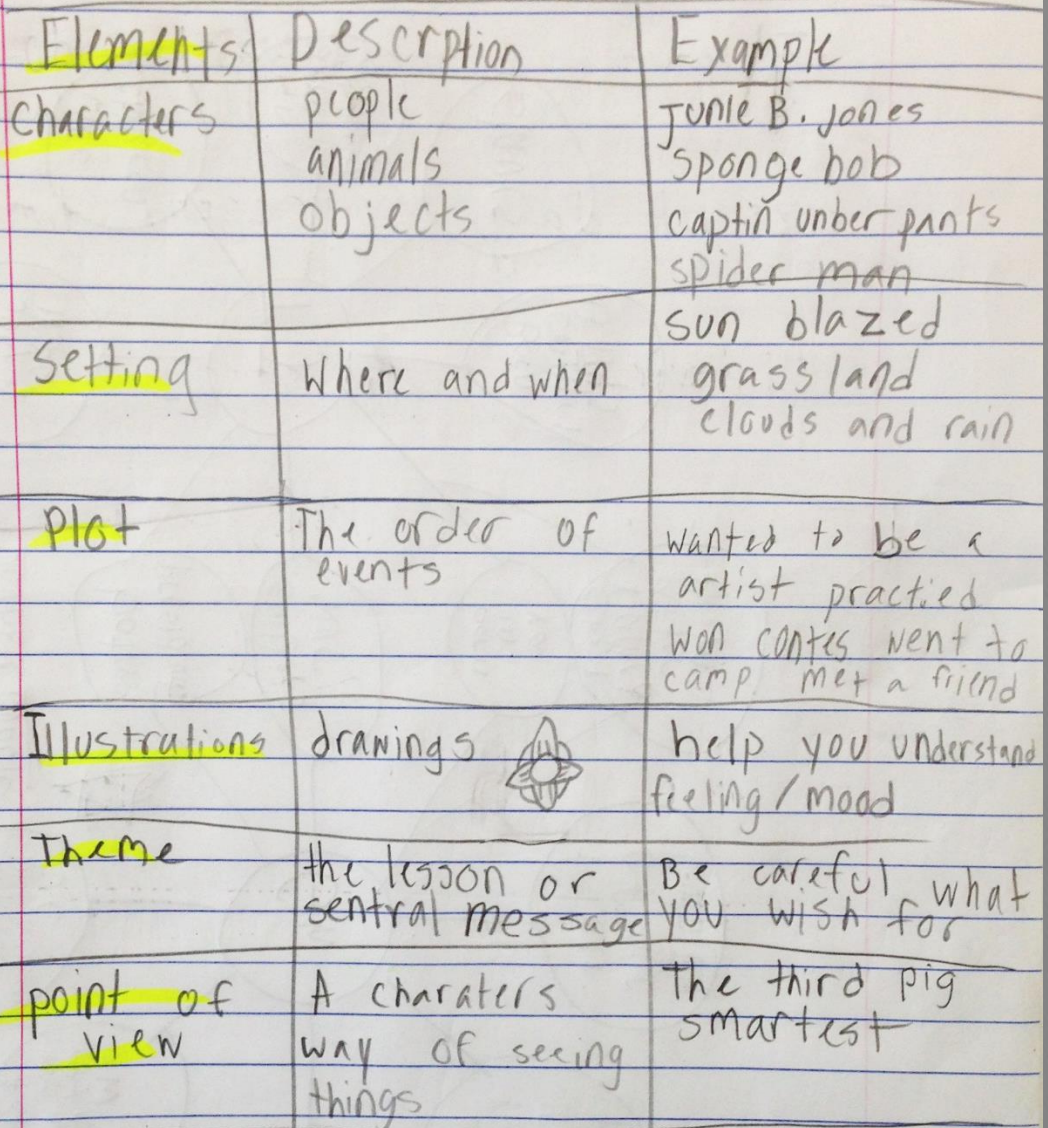 Elements Descrption Example
characters
people
animals
objects
Junie B. Jones
sponge bob
captin unber pants
spider man
Setting
Where and when
sun blazed
grass land
clouds and rain
plot
The order of
events
wanted to be a
artist practied
won contes went to
camp. met a friend
Illustrations
drawings
help you understand
feeling/mood
Theme
the lesson or
sentral message
Be careful what
you wish for
point of
view
A charaters
way of seeing
things
The third pig
smartest